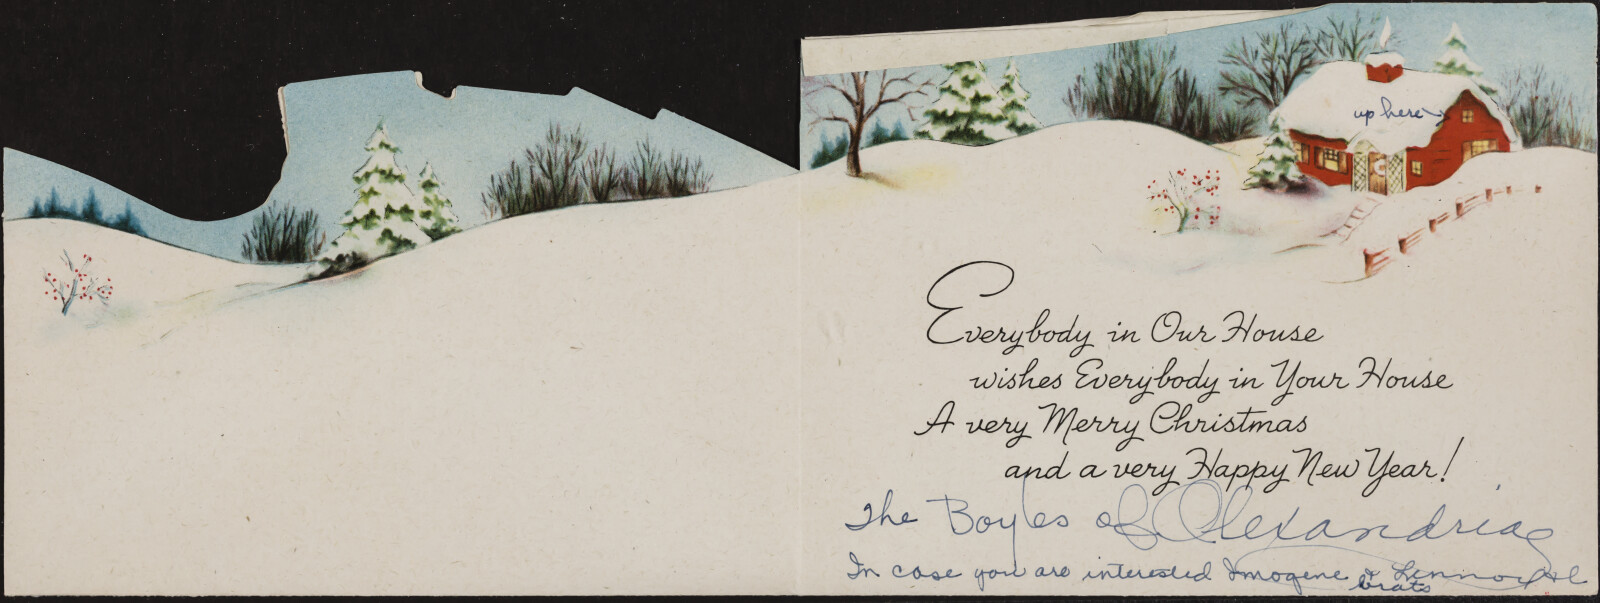 up here
Everybody in Our House
wishes Everybody in Your House
A very Merry Christmas
and a very Happy New Year!
The Boyles of Alexandria
In case you are interested Imogene & Lennox
brats